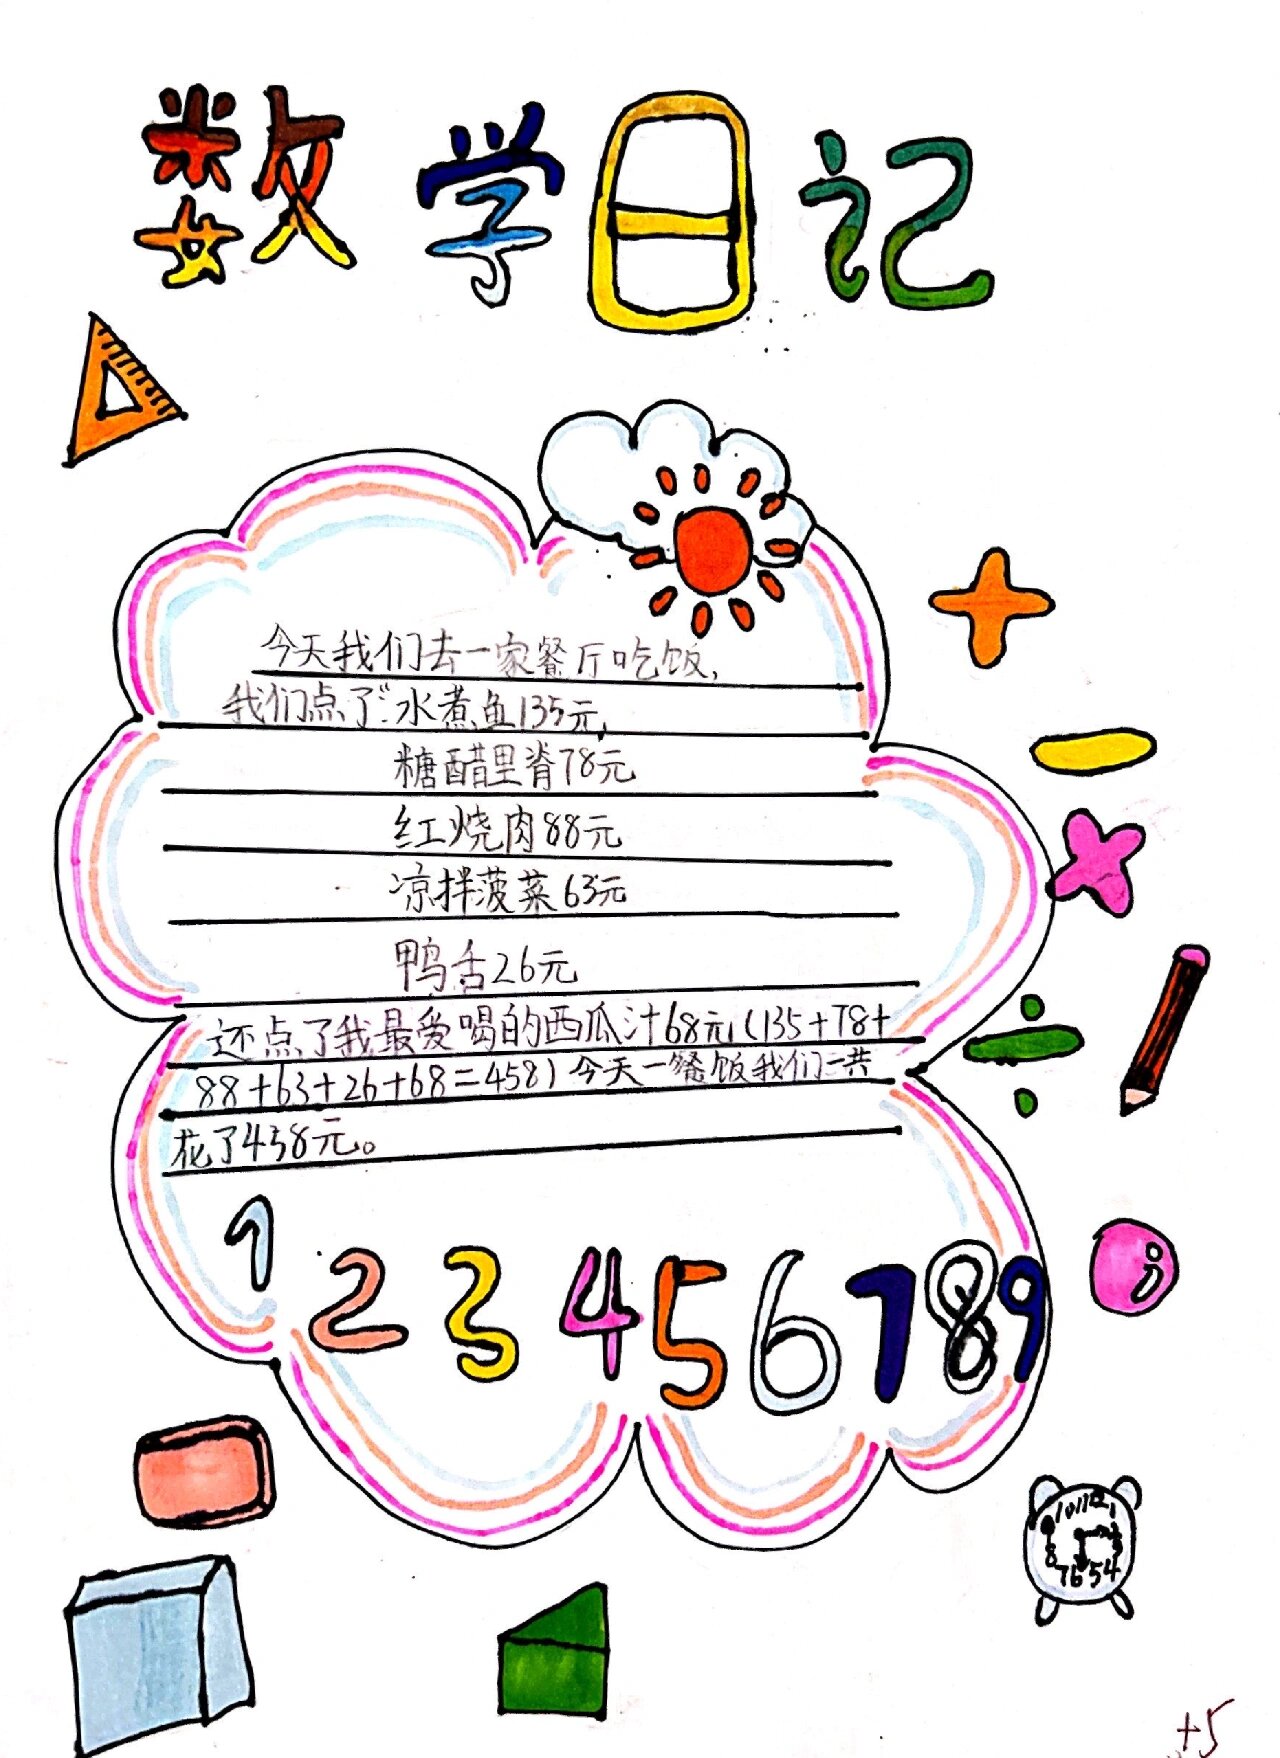 数学日记
今天我们去一家餐厅吃饭,
我们点了:水煮鱼135元,
糖醋里脊78元
红烧肉88元
凉拌菠菜63元
鸭舌26元
还点了我最爱喝的西瓜汁68元,(135+78+
88+63+26+68=458)今天一餐饭我们一共
花了458元。
1 2 3 4 5 6 7 8 9
+5